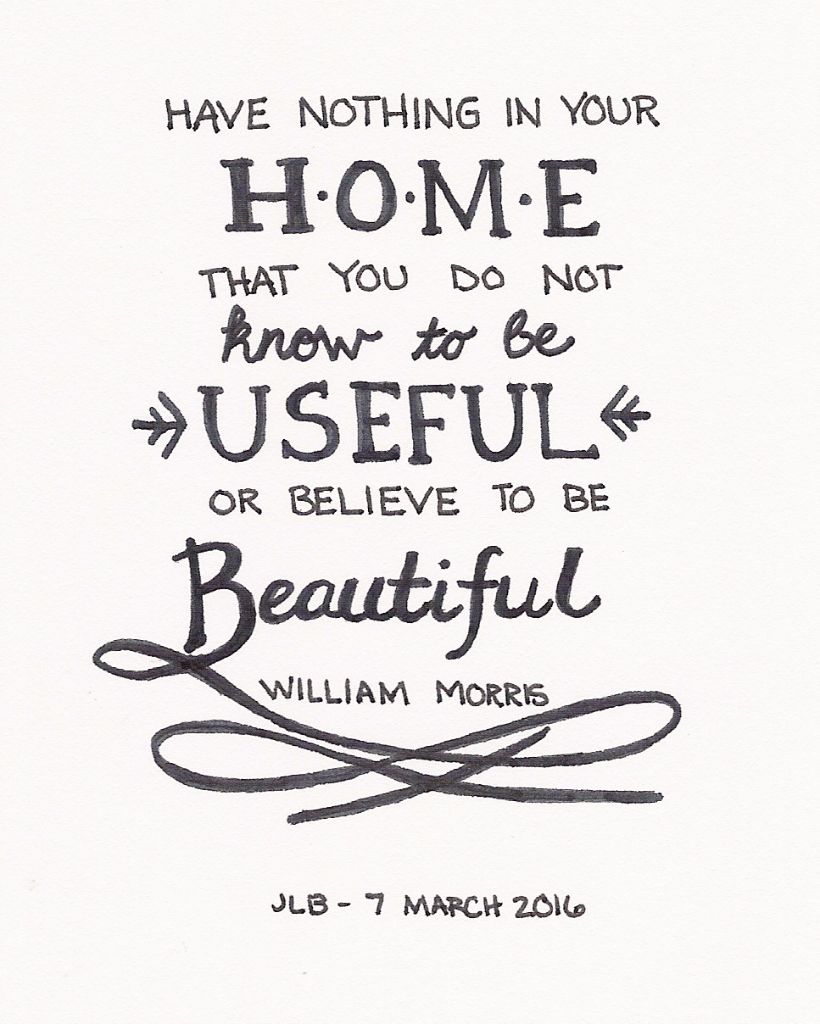 HAVE NOTHING IN YOUR
H·O·M·E
THAT YOU DO NOT
know to be
USEFUL
OR BELIEVE TO BE
Beautiful
WILLIAM MORRIS
JLB - 7 MARCH 2016